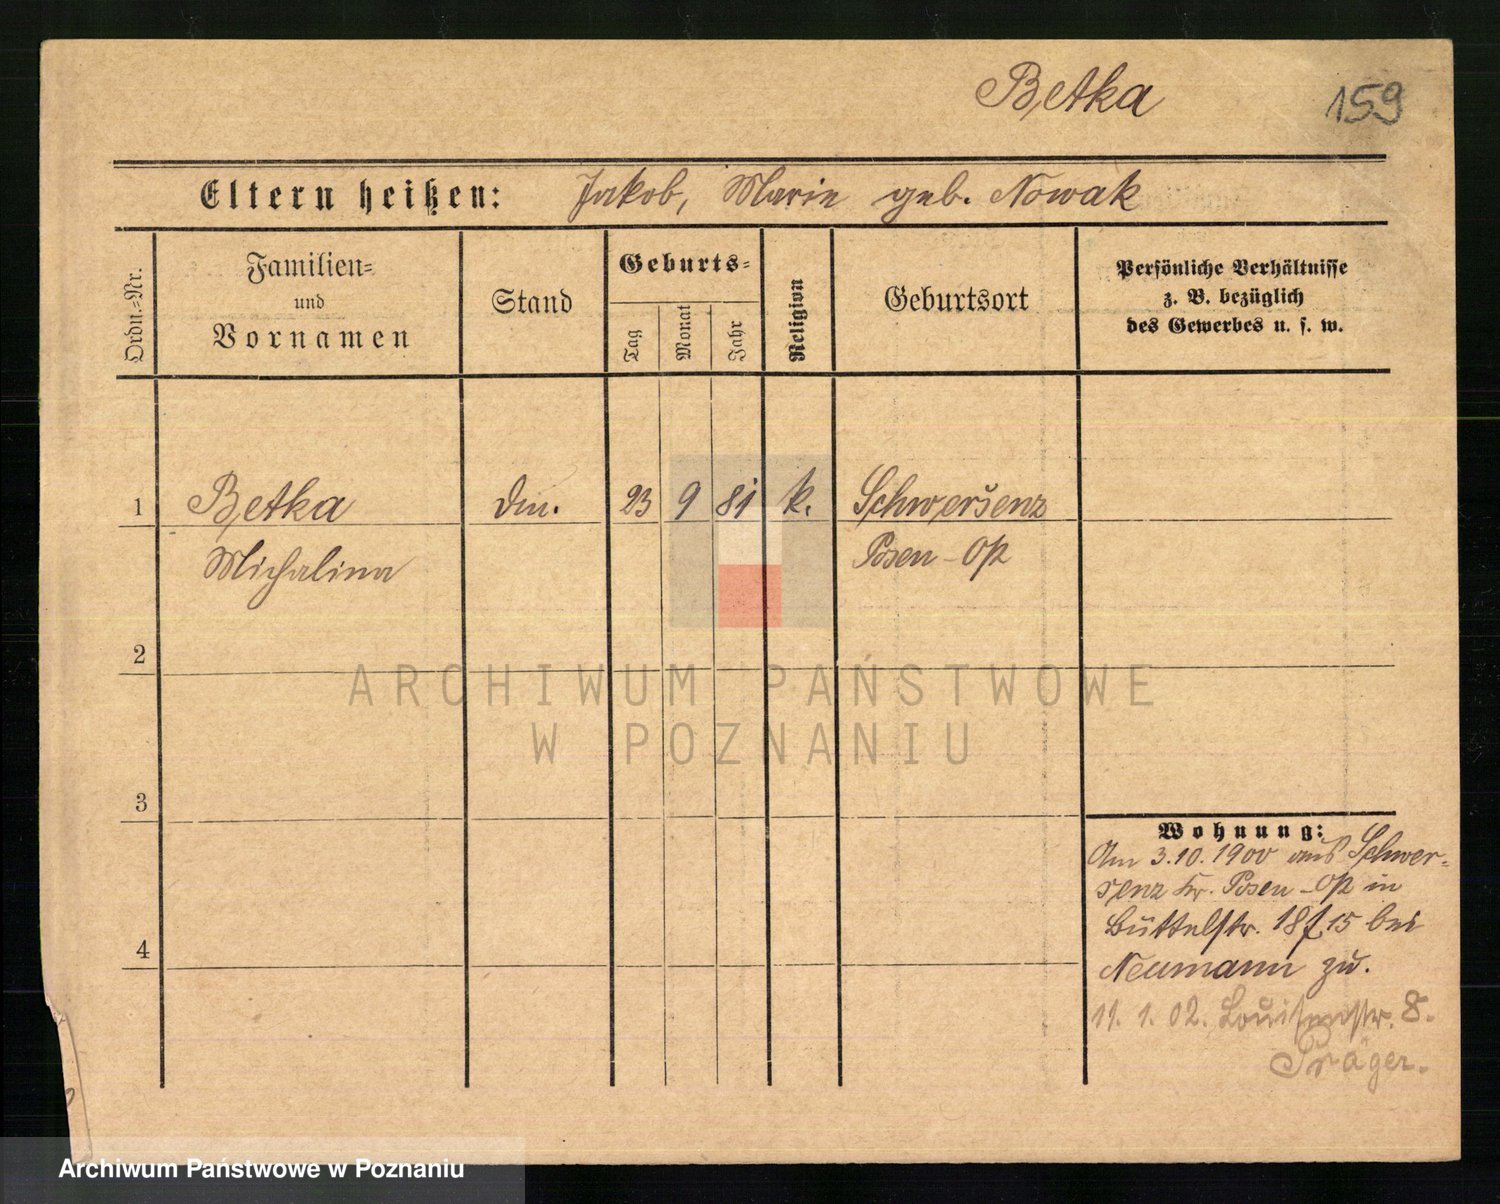 Betka
159
Eltern heißen: Jakob, Marie geb. Nowak
Ordn.=Nr.
Familien=
und
Vornamen
Stand
Geburts=
Tag
Monat
Jahr
Religion
Geburtsort
Persönliche Verhältnisse
z. B. bezüglich
des Gewerbes u. s. w.
1 Betka 23 9 81 k. Schwersenz
Michalina Posen-Op
2
ARCHIWUM PAŃSTWOWE
W POZNANIU
3
Wohnung:
Am 3.10.1900 aus Schwer=
senz Kr. Posen-Op in
Büttelstr. 18 15 bei
Neumann zu.
4
11. 1. 02. Louisenstr. 8.
Präger.
Archiwum Państwowe w Poznaniu